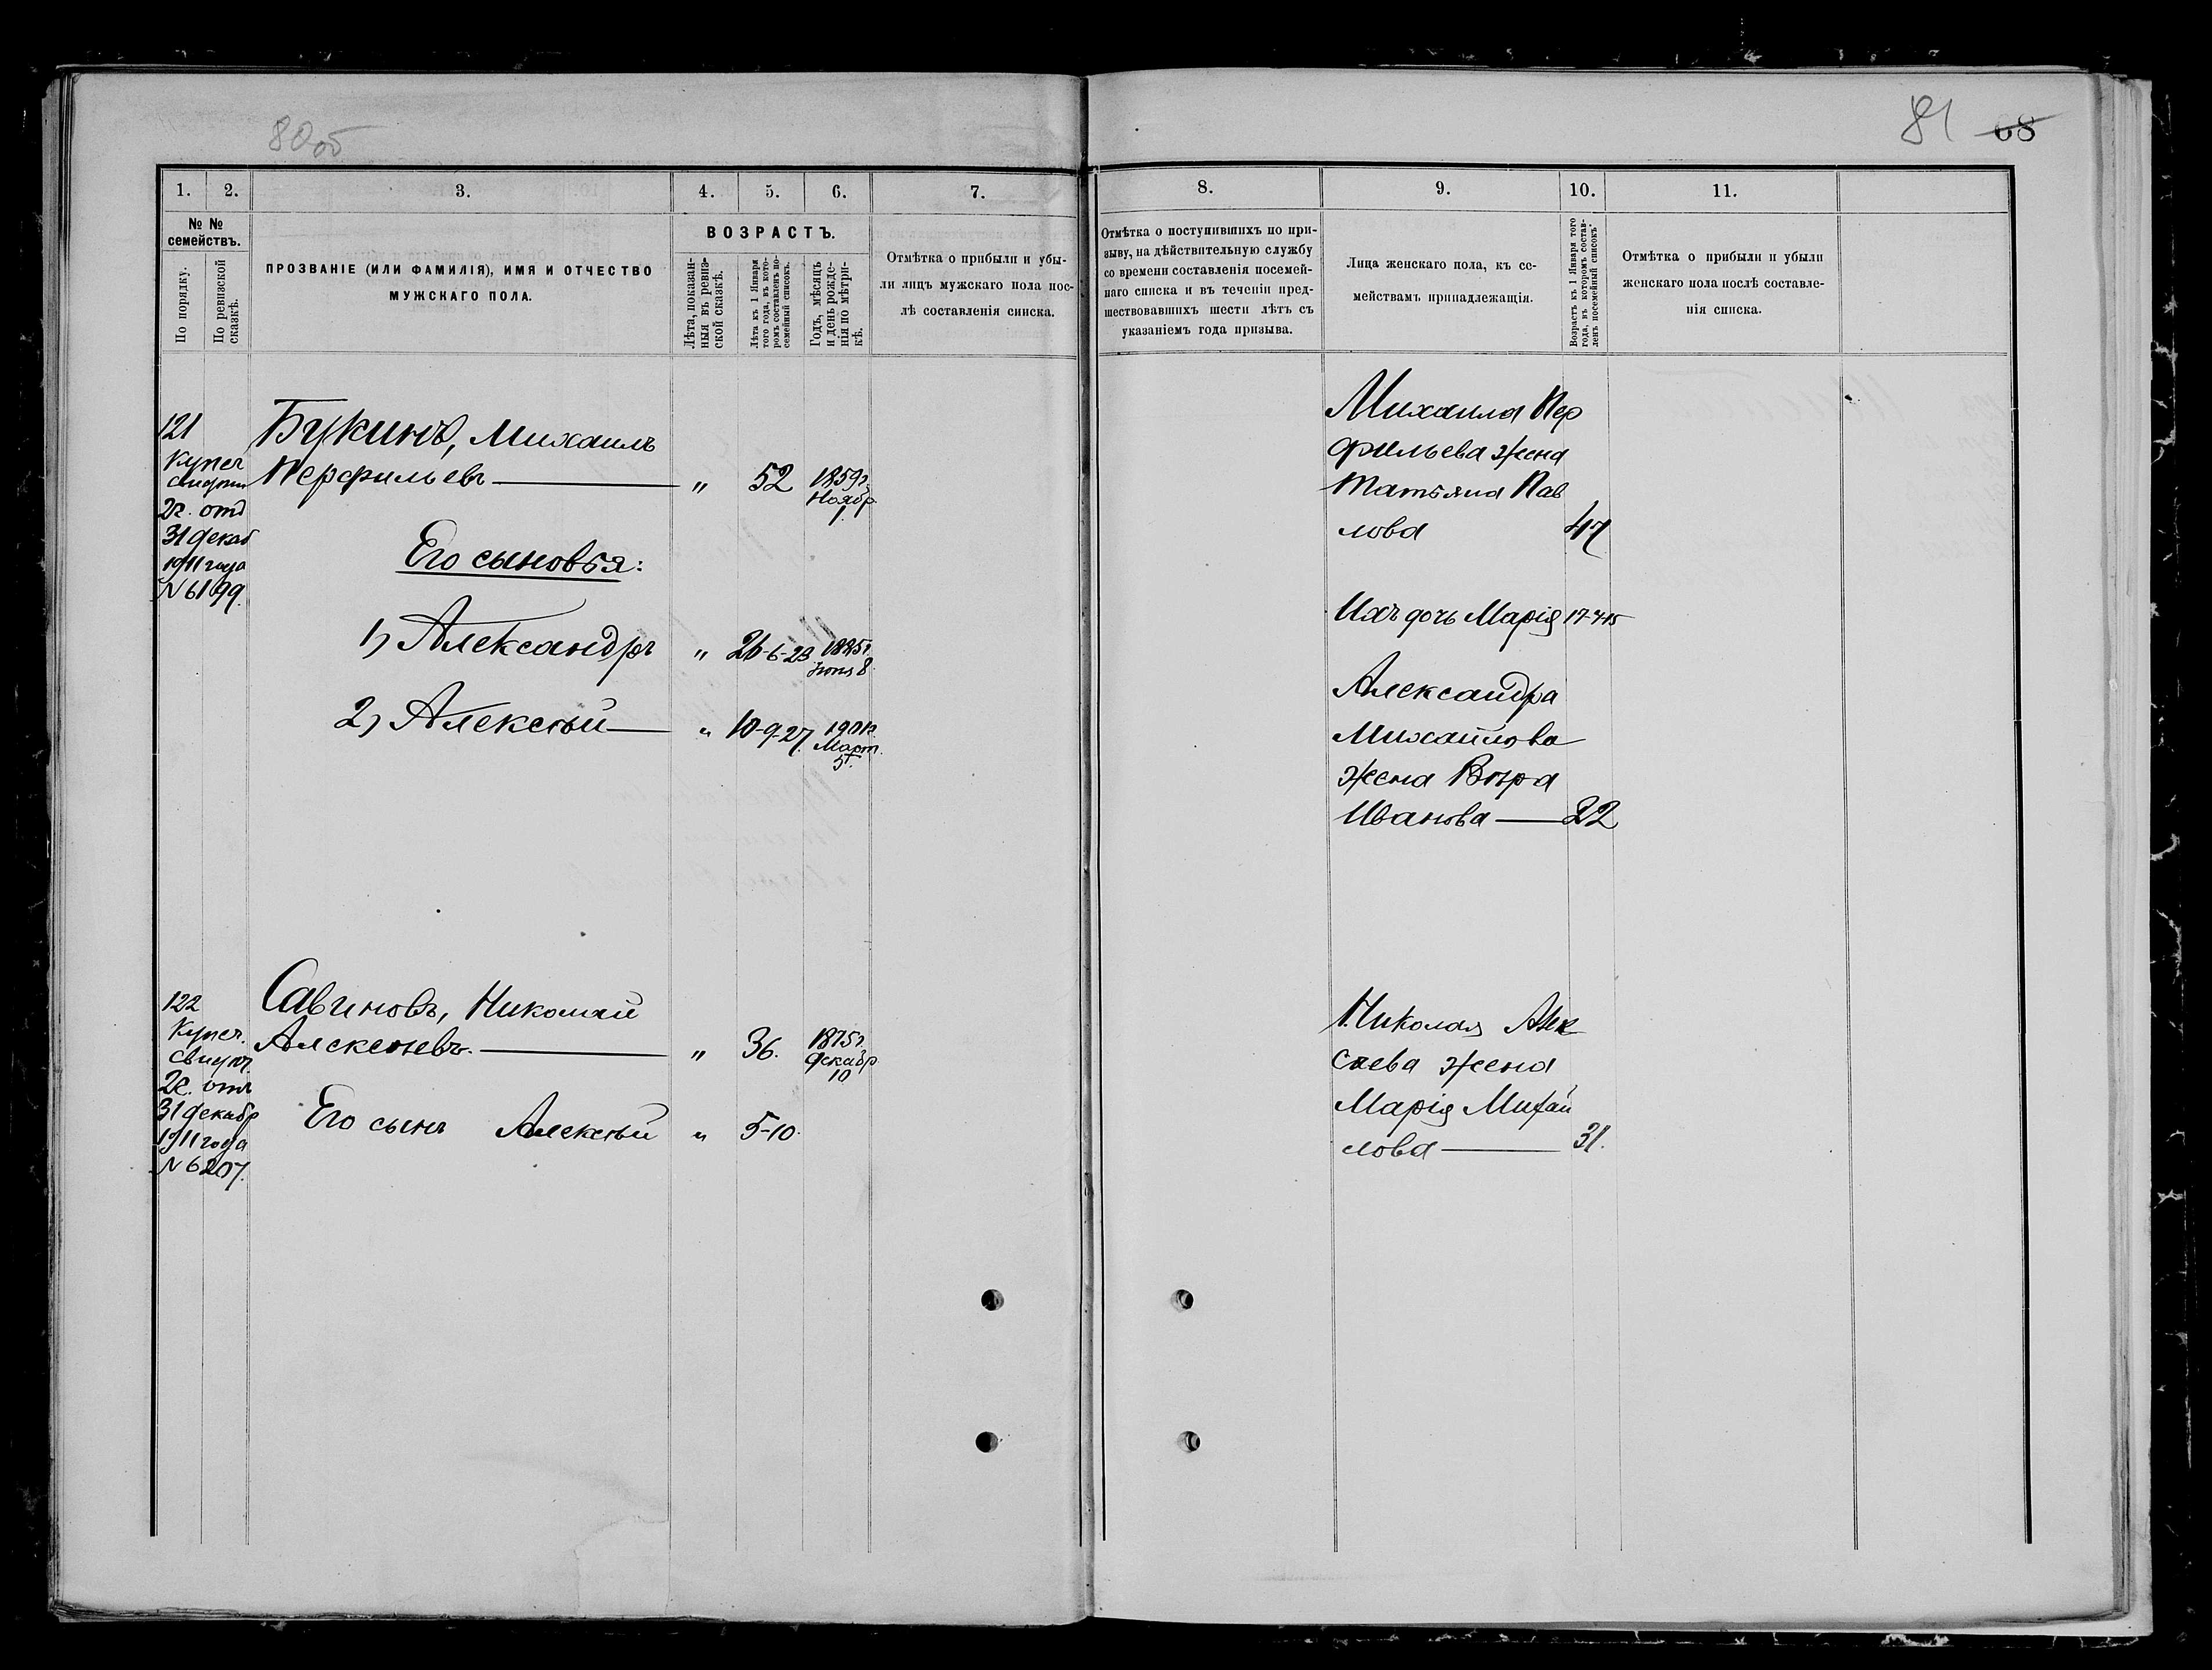 80об
81 68
1. 2. 3. 4. 5. 6. 7.
№ №
семействъ.
По порядку.
По ревизской
сказкѣ.
ПРОЗВАНІЕ (ИЛИ ФАМИЛІЯ), ИМЯ И ОТЧЕСТВО
МУЖСКАГО ПОЛА.
ВОЗРАСТЪ.
Лѣта, показан-
ныя въ ревиз-
ской сказкѣ.
Лѣта къ 1 Января
того года, въ кото-
ромъ составленъ по-
семейный списокъ.
Годъ, мѣсяцъ
и день рожде-
нія по мѣтри-
кѣ.
Отмѣтка о прибыли и убы-
ли лицъ мужскаго пола пос-
лѣ составленія списка.
121
Купеч
свидѣт
2г. отд
31 декаб
1911 года
N 6199.
Букинъ, Михаилъ
Перфильевъ — „ 52 1859г.
Ноябр.
1.
Его сыновья:
1) Александръ „ 26-6-23 1885г.
Іюня 8.
2) Алексѣй — „ 10-9-27. 1901г.
Март.
5.
122
Купеч.
Свидѣт.
2г. отд
31 декабр
1911 года
N 6207.
Савиновъ, Николай
Алексѣевъ. — „ 36. 1875г.
декабр
10
Его сынъ Алексѣй „ 5-10.
8. 9. 10. 11.
Отмѣтка о поступившихъ по при-
зыву, на дѣйствительную службу
со времени составленія посемей-
наго списка и въ теченіи пред-
шествовавшихъ шести лѣтъ съ
указаніемъ года призыва.
Лица женскаго пола, къ се-
мействамъ принадлежащія.
Возрастъ къ 1 Января того
года, въ которомъ состав-
ленъ посемейный списокъ.
Отмѣтка о прибыли и убыли
женскаго пола послѣ составле-
нія списка.
Михаила Пер
фильева жена
Татьяна Пав
лова 47
Ихъ дочь Марія 17-7-15
Александра
Михайлова
жена Вѣра
Иванова — 22
Николая Алек
сѣева жена
Марія Михай
лова — 31.